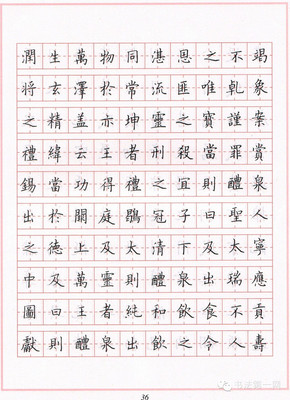 潤生萬物同湛恩之不竭
将玄澤於常流匪唯乹象
之精盖亦坤靈之寶謹案
禮緯云王者刑殺當罪賞
錫當功得禮之宜則醴泉
出於闕庭鶡冠子曰聖人
之德上及太清下及太寧
中及萬靈則醴泉出瑞應
圖曰王者純和飲食不貢
獻則醴泉出飲之令人壽
36